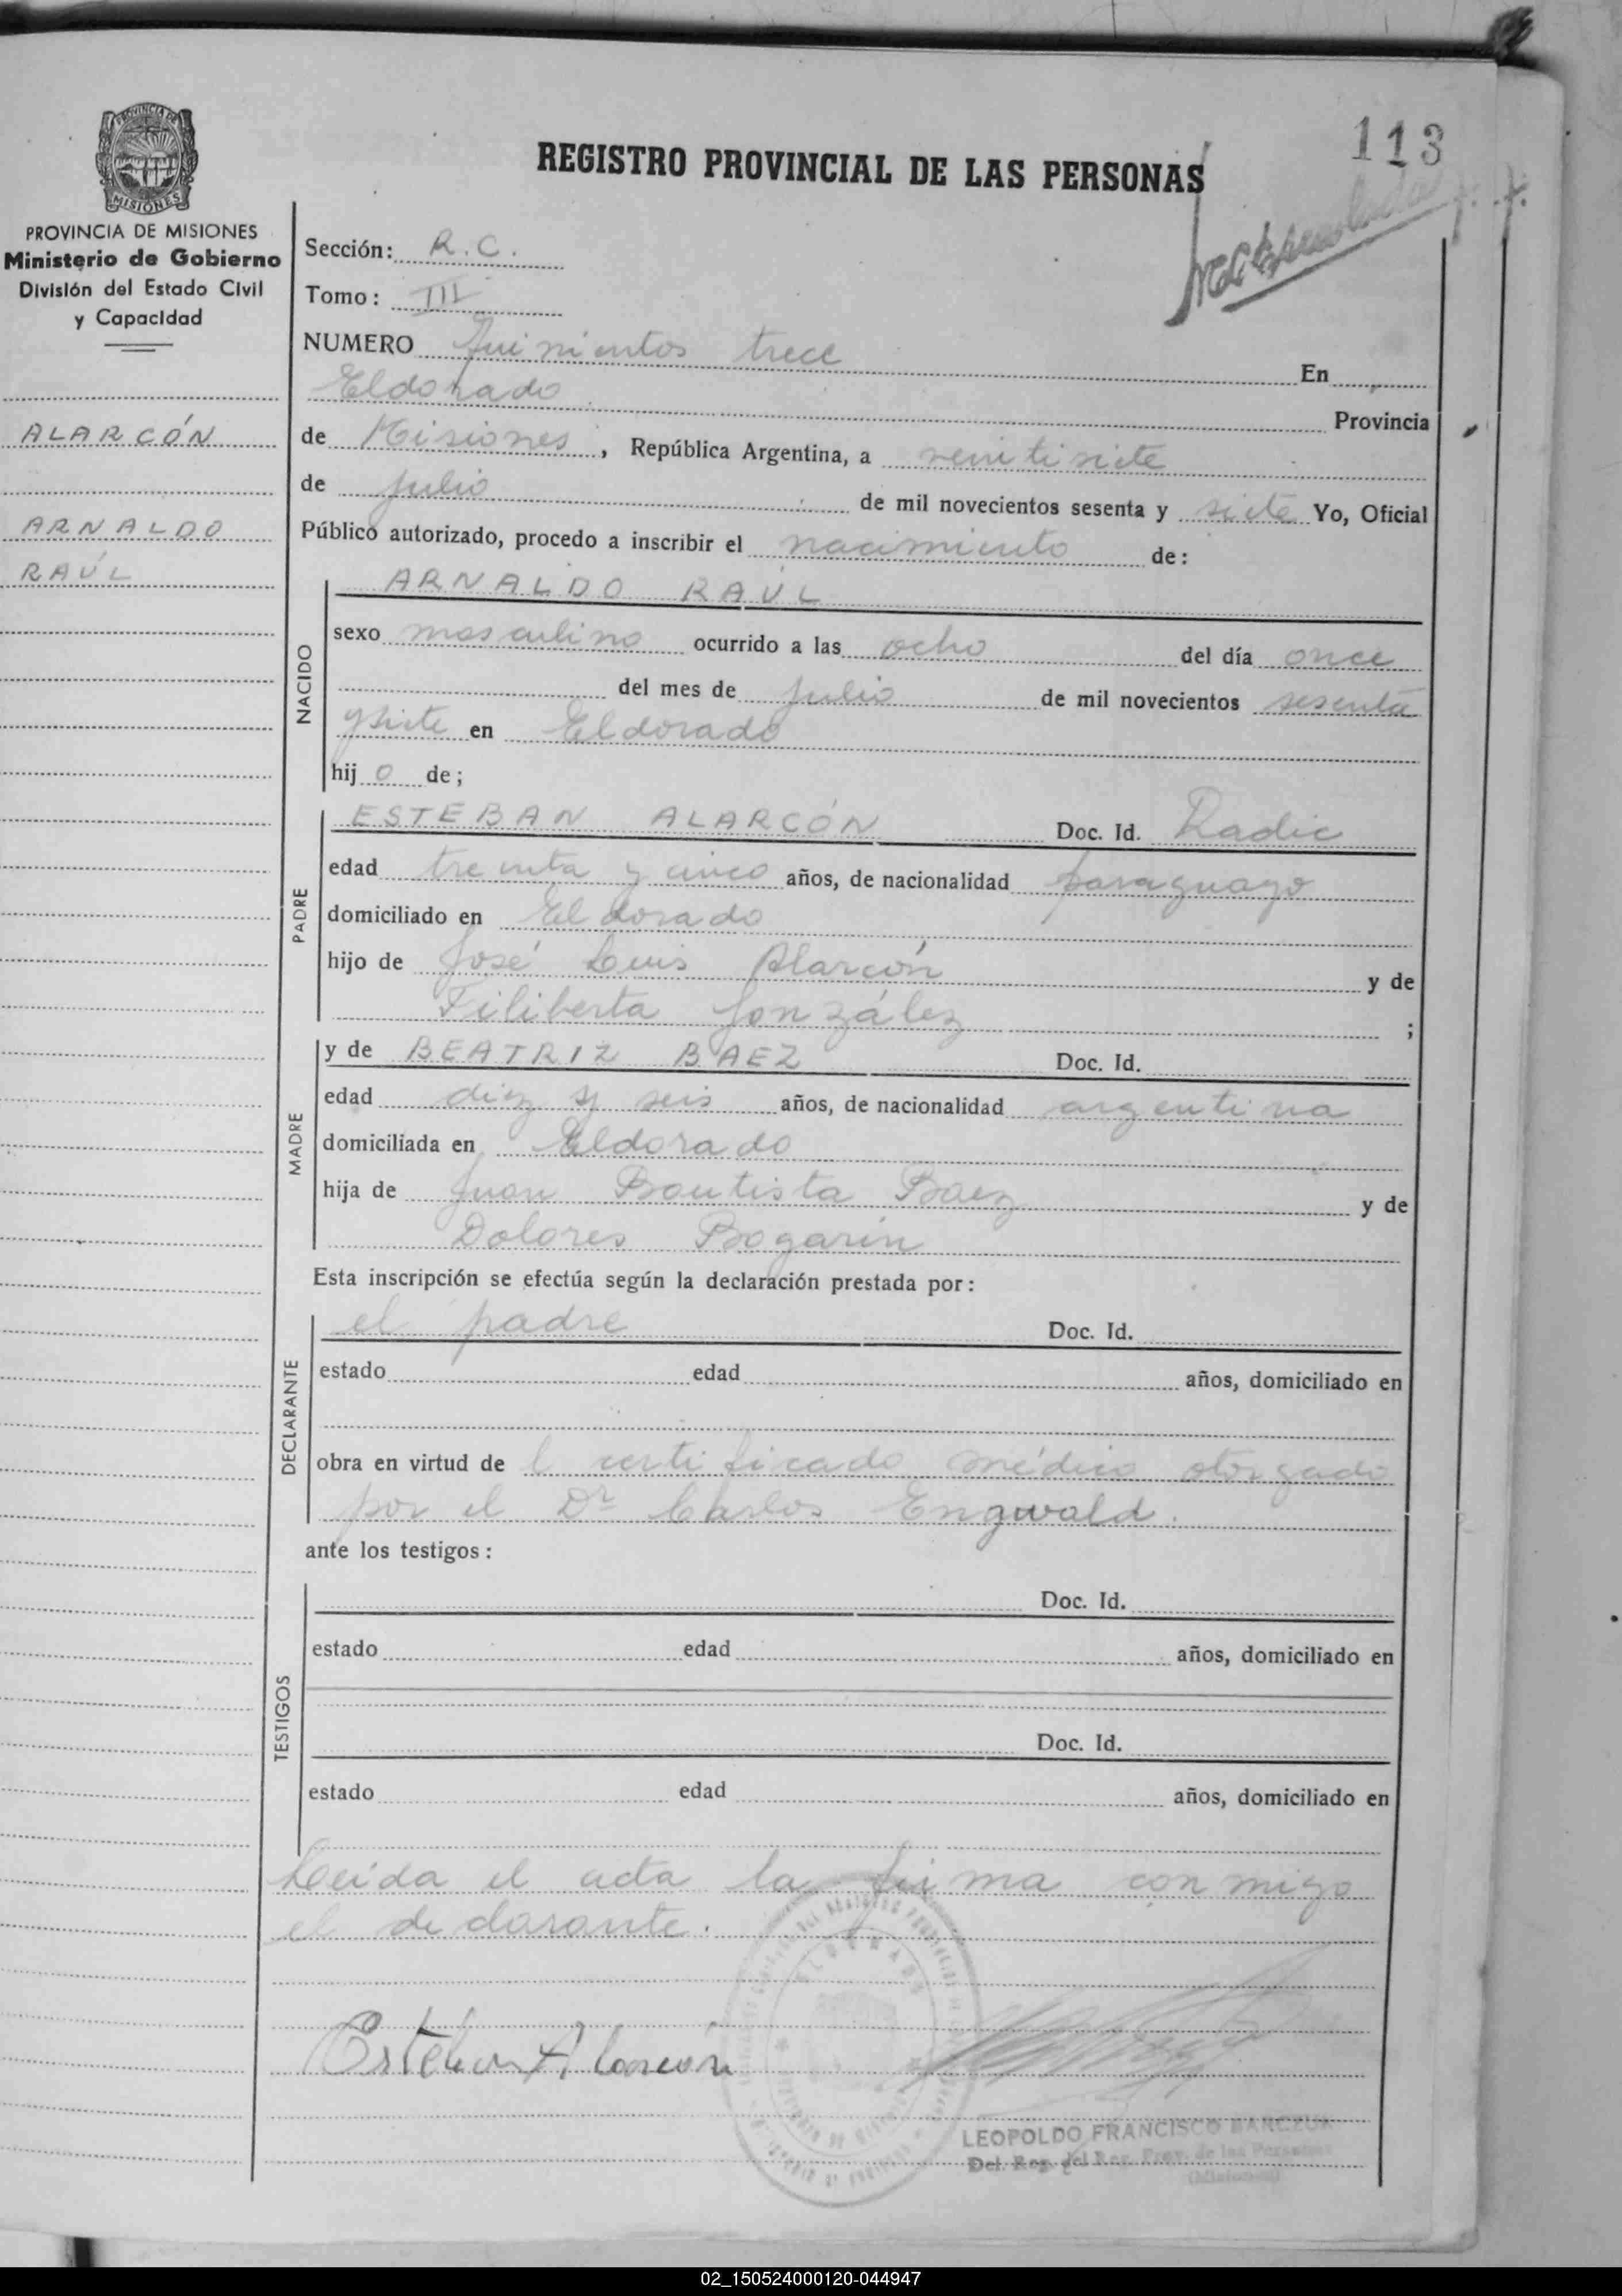 113
REGISTRO PROVINCIAL DE LAS PERSONAS
PROVINCIA DE MISIONES
PROVINCIA DE MISIONES
Ministerio de Gobierno
División del Estado Civil
y Capacidad
ALARCÓN
ARNALDO
RAÚL
Sección: R.C.
Tomo: III
NUMERO Quinientos trece En
Eldorado Provincia
de Misiones, República Argentina, a veintisiete
de julio de mil novecientos sesenta y siete Yo, Oficial
Público autorizado, procedo a inscribir el nacimiento de:
NACIDO
ARNALDO RAÚL
sexo masculino ocurrido a las ocho del día once
del mes de julio de mil novecientos sesenta
y siete en Eldorado
hij o de;
PADRE
ESTEBAN ALARCÓN Doc. Id. Radic
edad treinta y cinco años, de nacionalidad paraguayo
domiciliado en Eldorado
hijo de José Luis Alarcón y de
Filiberta González ;
MADRE
y de BEATRIZ BAEZ Doc. Id.
edad diez y seis años, de nacionalidad argentina
domiciliada en Eldorado
hija de Juan Bautista Baez y de
Dolores Bogarín
Esta inscripción se efectúa según la declaración prestada por:
DECLARANTE
el padre Doc. Id.
estado edad años, domiciliado en
obra en virtud de l certificado médico otorgado
por el Dr Carlos Engwald.
ante los testigos:
TESTIGOS
Doc. Id.
estado edad años, domiciliado en
Doc. Id.
estado edad años, domiciliado en
Leída el acta la firma conmigo
el declarante.
Esteban Alarcón
LEOPOLDO FRANCISCO
Del. Reg. del Reg. Prov. de las Personas
(Misiones)
02_150524000120-044947